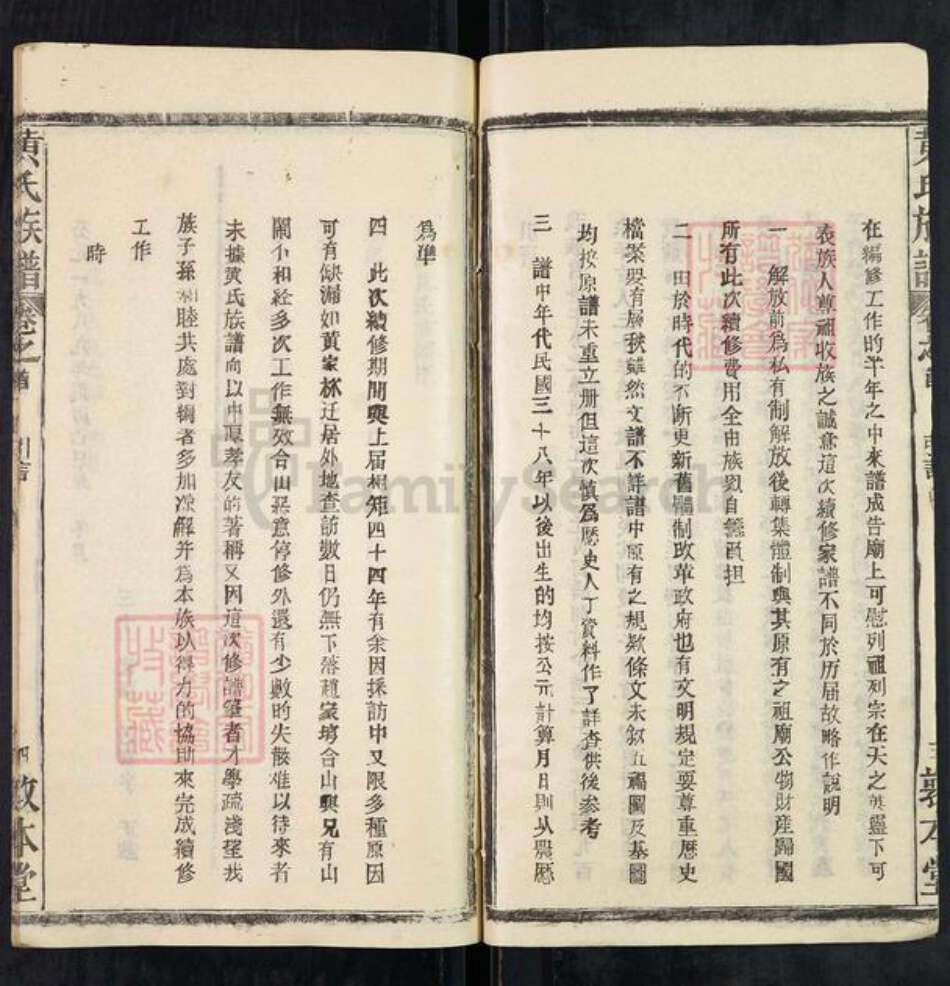 在編修工作的半年之中來譜成告廟上可慰列祖列宗在天之英靈下可
表族人尊祖收族之誠意這次續修家譜不同於历届故略作說明
一 解放前為私有制解放後轉集體制與其原有之祖廟公物財産歸國
所有此次續修費用全由族 自 負担
二 由於時代的不断更新舊體制改革政府也有文明規定要尊重歷史
檔案要有 雖然文譜不詳譜中原有之規欸條文未叙五福圖及基圖
均按原譜未重立册但這次慎為歷史人丁資料作了詳査供後參考
三 譜中年代民國三十八年以後出生的均按公元計算月日則从農歷
為準
四 此次續修期間與上届相矩四十四年有余因採訪中又限多種原因
可有缺漏如黄家林迁居外地查訪數日仍無下落趙家塝合山與兄有山
閙不和经多次工作無效合山惡意停修外還有少數的失散难以待來者
未據黄氏族譜向以中原孝友的著稱又因這次修譜 者才學疏淺望我
族子孫和睦共處對輯者多加凉解并為本族以得力的協助來完成續修
工作
時
黄氏族譜
卷之首
引言
四
敦本堂
黄氏族譜
三
敦本堂
FamilySearch